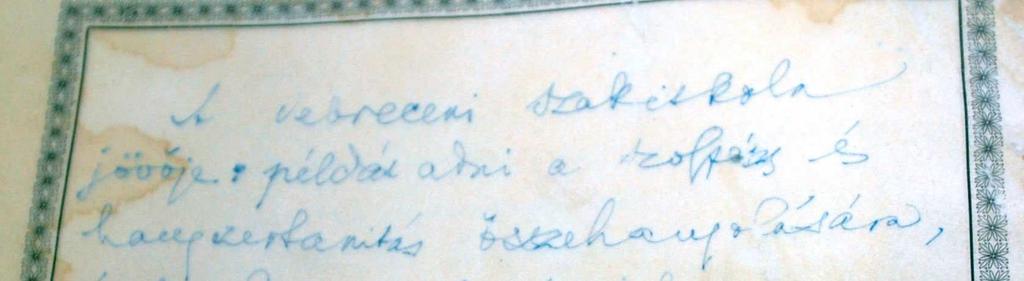 A debreceni szakiskola
jövője: példát adni a szolfézs és
hangszertanítás összehangolására,